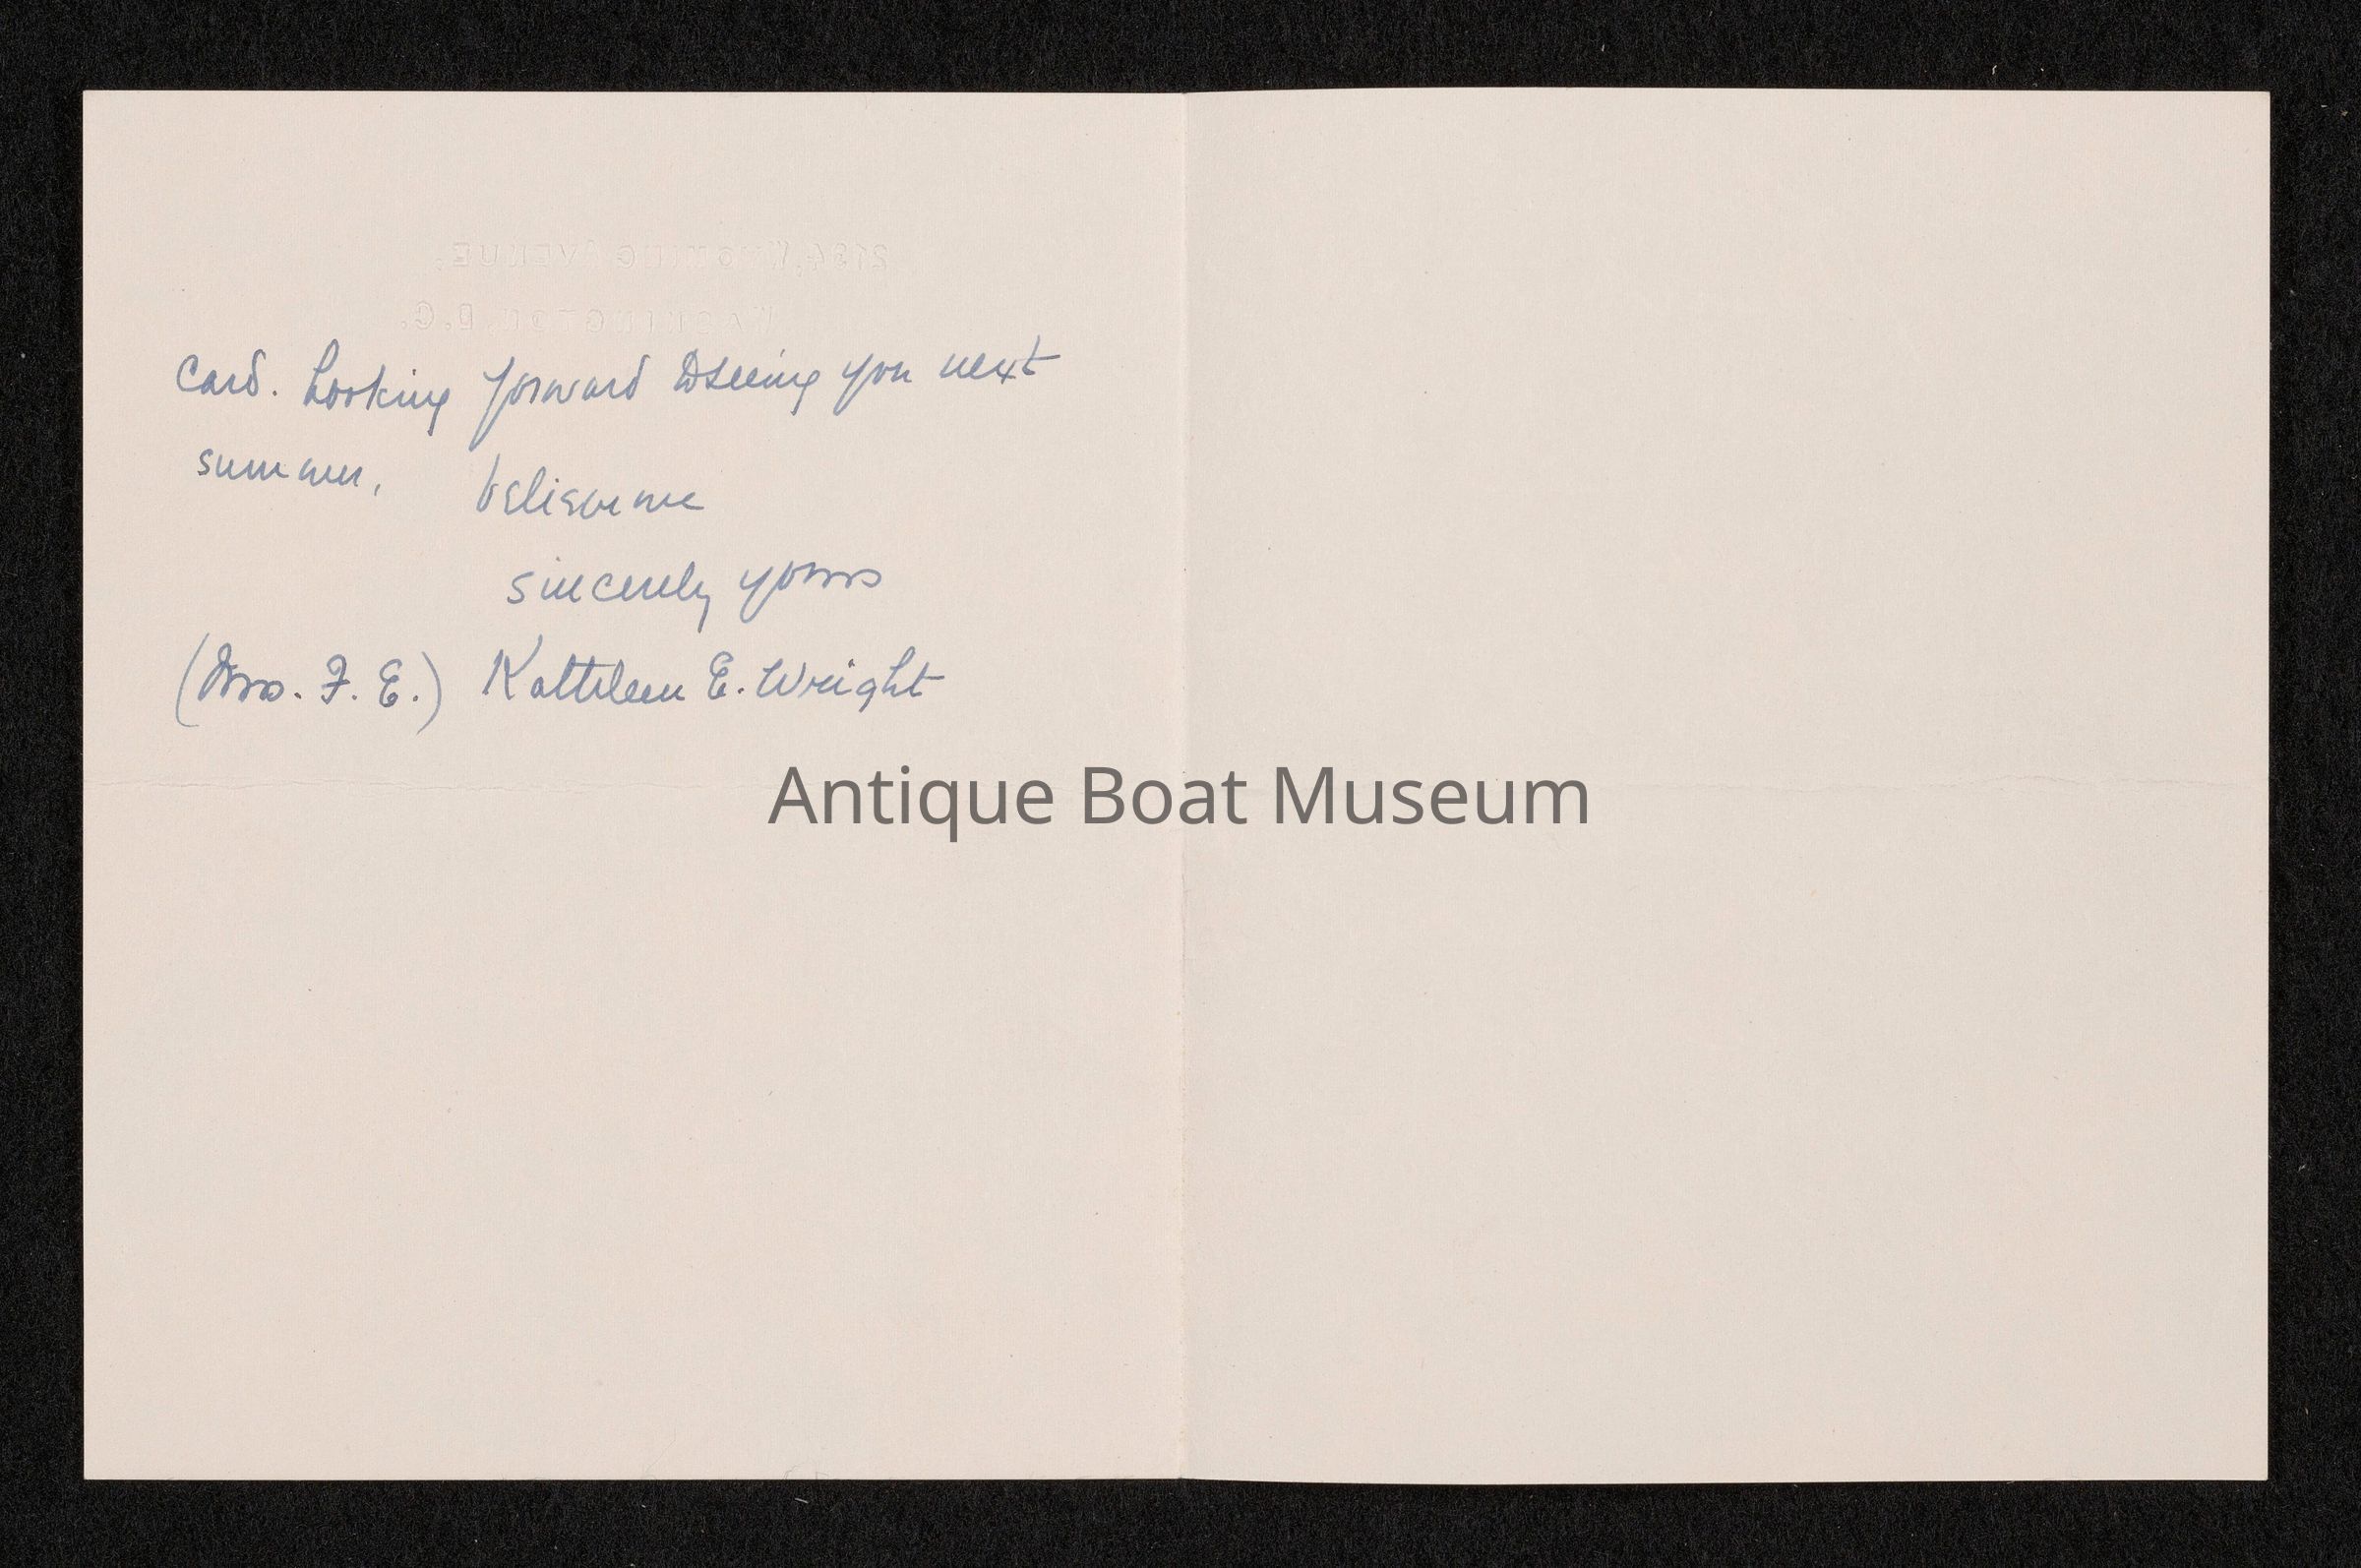 2134, WYOMING AVENUE,
WASHINGTON, D.C.
card. Looking forward to seeing you next
summer, believe me
sincerely yours
(Mrs. F. E.) Kathleen E. Wright
Antique Boat Museum